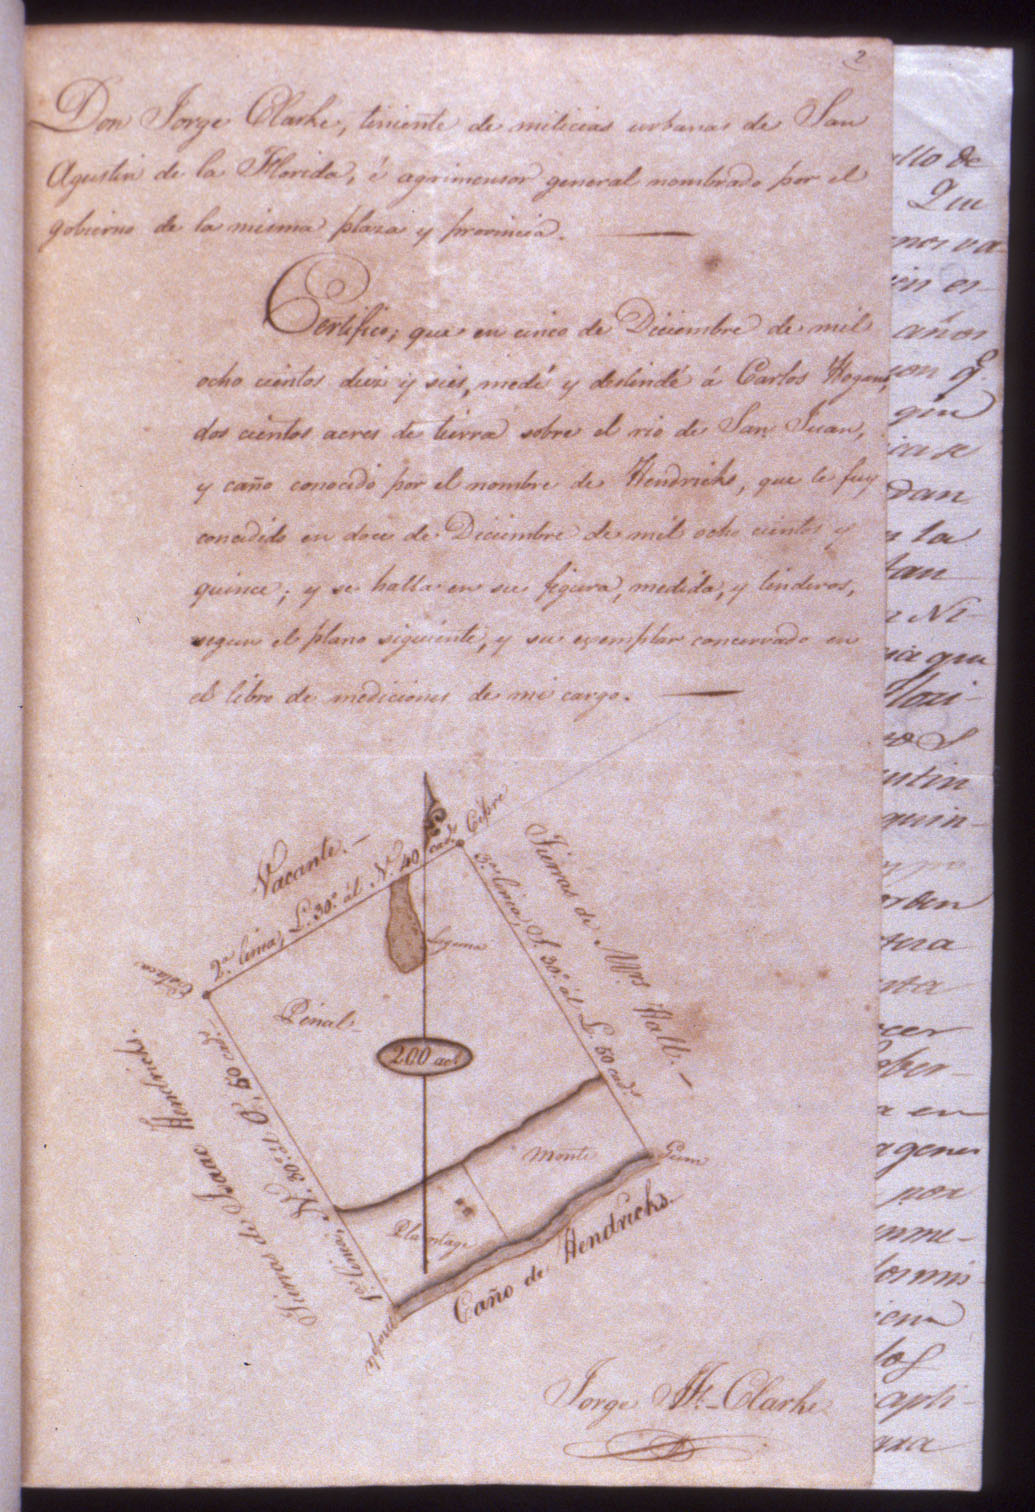 2
Don Jorge Clarke, teniente de milicias urbanas de San
Agustin de la Florida, é agrimensor general nombrado por el
gobierno de la misma plaza y provincia.
Certifico, que en cinco de Diciembre de mil
ocho cientos diez y seis, medí y deslindé á Carlos Hogans,
dos cientos acres de tierra sobre el rio de San Juan,
y caño conocido por el nombre de Hendricks, que le fuy
concedido en doce de Diciembre de mil ocho cientos y
quince; y se halla en su figura, medida, y linderos,
segun el plano siguiente, y su exemplar concervado en
el libro de mediciones de mi cargo.
Vacante.
2ª. linea, L. 30º. al N. 40 cad.
Cipre
Tierras de Mrs. Hall.
3ª. linea, S. 30º. al L. 50 cads.
Laguna
Pinal
200 acs
Tierras de Isaac Hendricks.
1ª. linea, N. 30º. al O. 50 cads.
Monte
Gum
Plantage
Caño de Hendricks.
Jorge J. F. Clarke
ello de
Que
años
que
dan
la
tan
que
ntin
quin-
orden
cer
ober-
a en
por
los
apli-